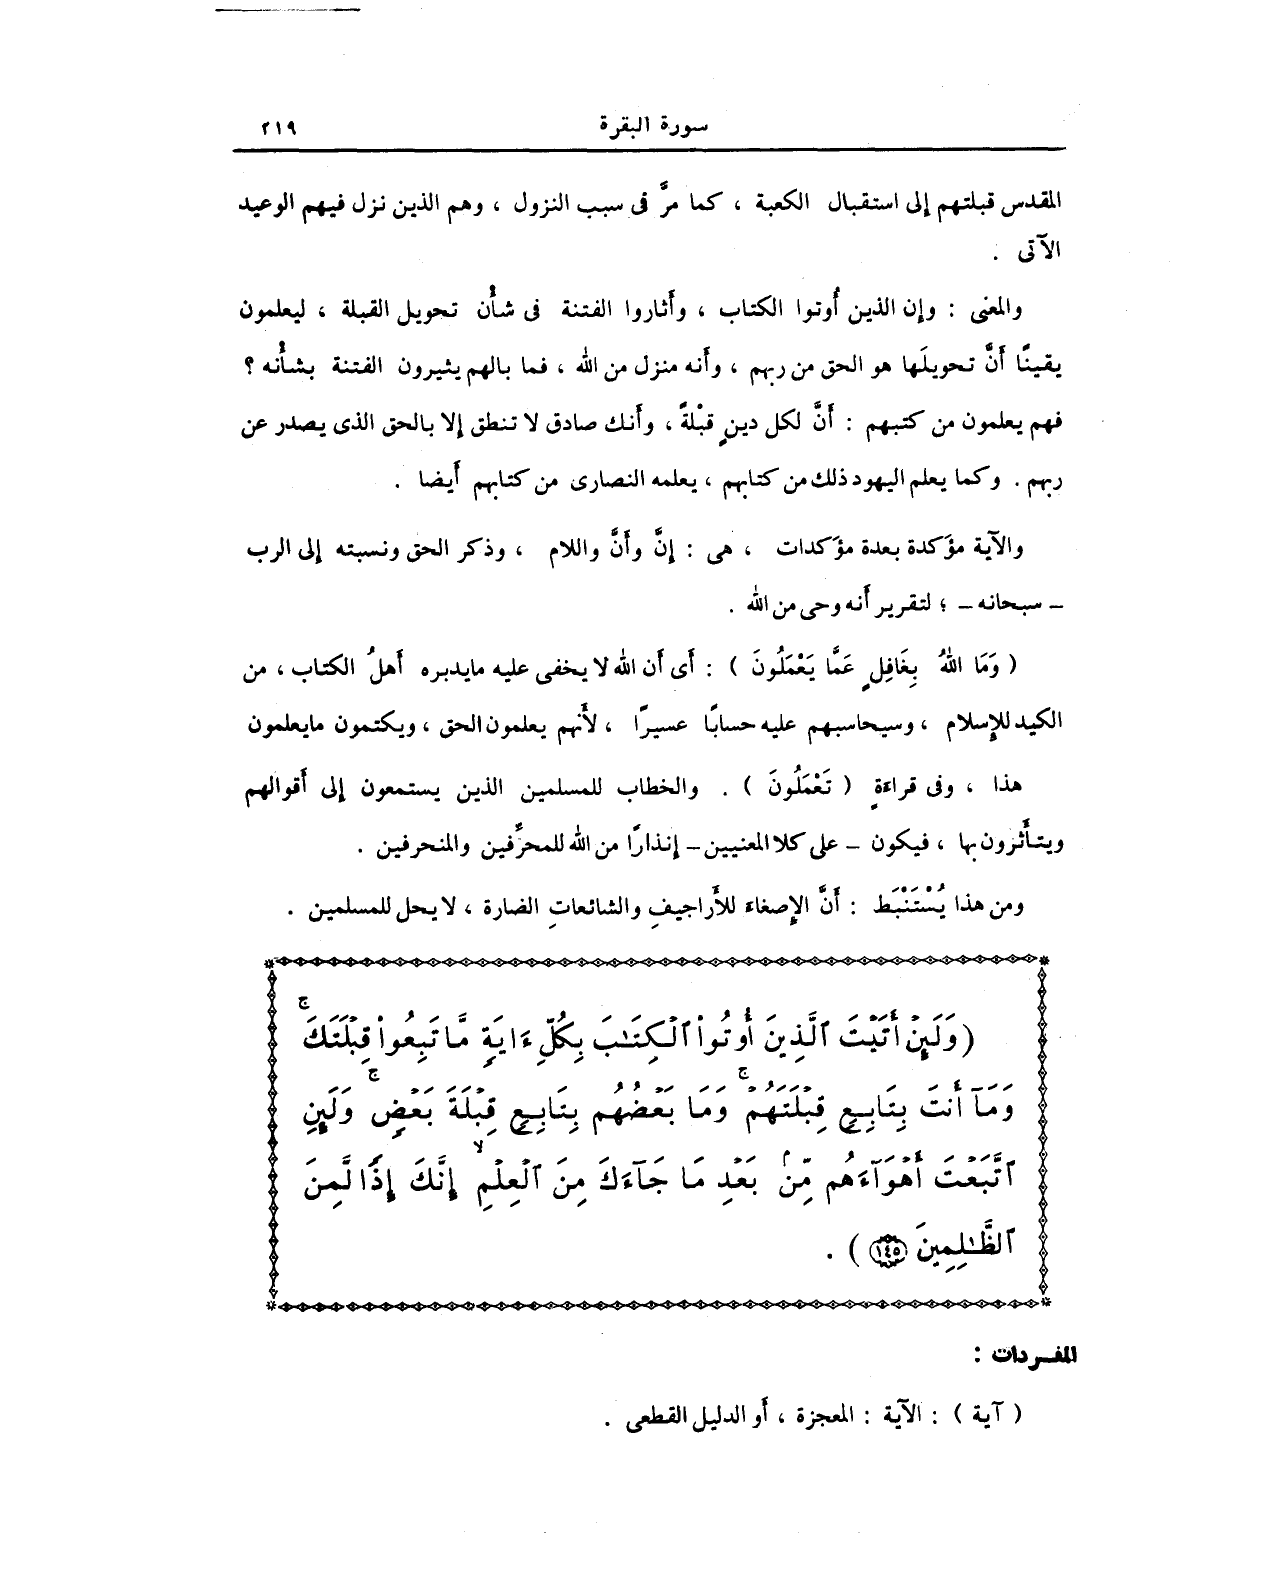 سورة البقرة ٢١٩
المقدس قبلتهم إلى استقبال الكعبة ، كما مرَّ فى سبب النزول ، وهم الذين نزل فيهم الوعيد
الآتى .
والمعنى : وإن الذين أُوتوا الكتاب ، وأثاروا الفتنة فى شأْن تحويل القبلة ، ليعلمون
يقينًا أَنَّ تحويلَها هو الحق من ربهم ، وأَنه منزل من الله ، فما بالهم يثيرون الفتنة بشأْنه ؟
فهم يعلمون من كتبهم : أَنَّ لكل دينٍ قبْلةً ، وأَنك صادق لا تنطق إلا بالحق الذى يصدر عن
ربهم . وكما يعلم اليهود ذلك من كتابهم ، يعلمه النصارى من كتابهم أَيضا .
والآية مؤَكدة بعدة مؤَكدات ، هى : إنَّ وأَنَّ واللام ، وذكر الحق ونسبته إلى الرب
– سبحانه – ؛ لتقرير أَنه وحى من الله .
( وَمَا اللهُ بِغَافِلٍ عَمَّا يَعْمَلُونَ ) : أَى أَن الله لا يخفى عليه مايدبره أَهلُ الكتاب ، من
الكيد للإِسلام ، وسيحاسبهم عليه حسابًا عسيرًا ، لأَنهم يعلمون الحق ، ويكتمون مايعلمون
هذا ، وفى قراءَةٍ ( تَعْمَلُونَ ) . والخطاب للمسلمين الذين يستمعون إلى أَقوالهم
ويتأَثرون بها ، فيكون – على كلا المعنيين – إنذارًا من الله للمحرِّفين والمنحرفين .
ومن هذا يُسْتَنْبَط : أَنَّ الإِصغاءَ للأَراجيفِ والشائعاتِ الضارة ، لا يحل للمسلمين .
(وَلَئِنْ أَتَيْتَ ٱلَّذِينَ أُوتُواْ ٱلْكِتَٰبَ بِكُلِّ ءَايَةٍ مَّا تَبِعُواْ قِبْلَتَكَۚ
وَمَآ أَنتَ بِتَابِعٍ قِبْلَتَهُمْۚ وَمَا بَعْضُهُم بِتَابِعٍ قِبْلَةَ بَعْضٍۚ وَلَئِنِ
ٱتَّبَعْتَ أَهْوَآءَهُم مِّنۢ بَعْدِ مَا جَآءَكَ مِنَ ٱلْعِلْمِۙ إِنَّكَ إِذًا لَّمِنَ
ٱلظَّٰلِمِينَ ١٤٥) .
المفـردات :
( آية ) : الآية : المعجزة ، أَو الدليل القطعى .